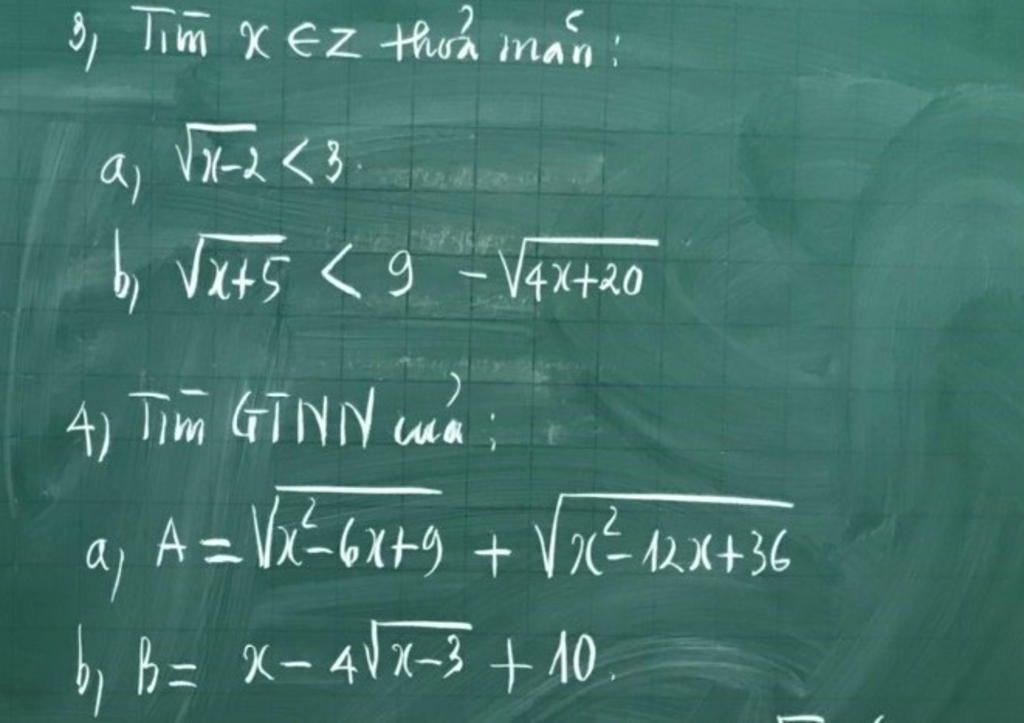 3, Tìm x ∈ Z thoả mãn :
a, √(x-2) < 3.
b, √(x+5) < 9 - √(4x+20)
4) Tìm GTNN của :
a, A = √(x²-6x+9) + √(x²-12x+36)
b, B = x - 4√(x-3) + 10.